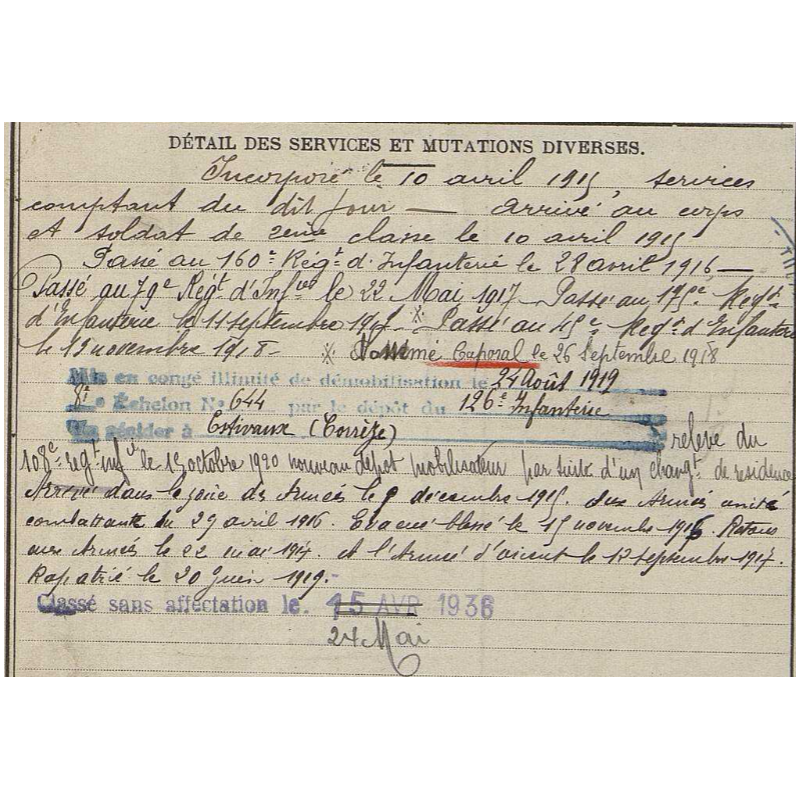 DÉTAIL DES SERVICES ET MUTATIONS DIVERSES.
Incorporé le 10 avril 1915, services
comptant du dit jour — arrivé au corps
et soldat de 2eme classe le 10 avril 1915
Passé au 160e Régt d'Infanterie le 28 avril 1916 —
Passé au 79e Régt d'Infie le 22 Mai 1917 — Passé au 175e Regt
d'Infanterie le 11 septembre 1917 - Passé au 45e Regt d'Infanterie
le 13 novembre 1918 - Nommé Caporal le 26 Septembre 1918
Mis en congé illimité de démobilisation le 24 Août 1919
8e Echelon No 644 par le dépôt du 126e Infanterie
Se retire à Estivaux (Corrèze) relevé du
108e regt infie le 15 octobre 1920 nouveau dépôt mobilisateur par suite d'un changt de residence
Arrivé dans la zone des Armées le 9 décembre 1915. Aux Armées unité
combattante du 29 avril 1916. Evacué blessé le 15 novembre 1916 Retour
aux Armées le 22 mai 1917. et à l'Armée d'orient le 12 septembre 1917.
Rapatrié le 20 Juin 1919.-
Classé sans affectation le. 15 AVR 1936
24 Mai